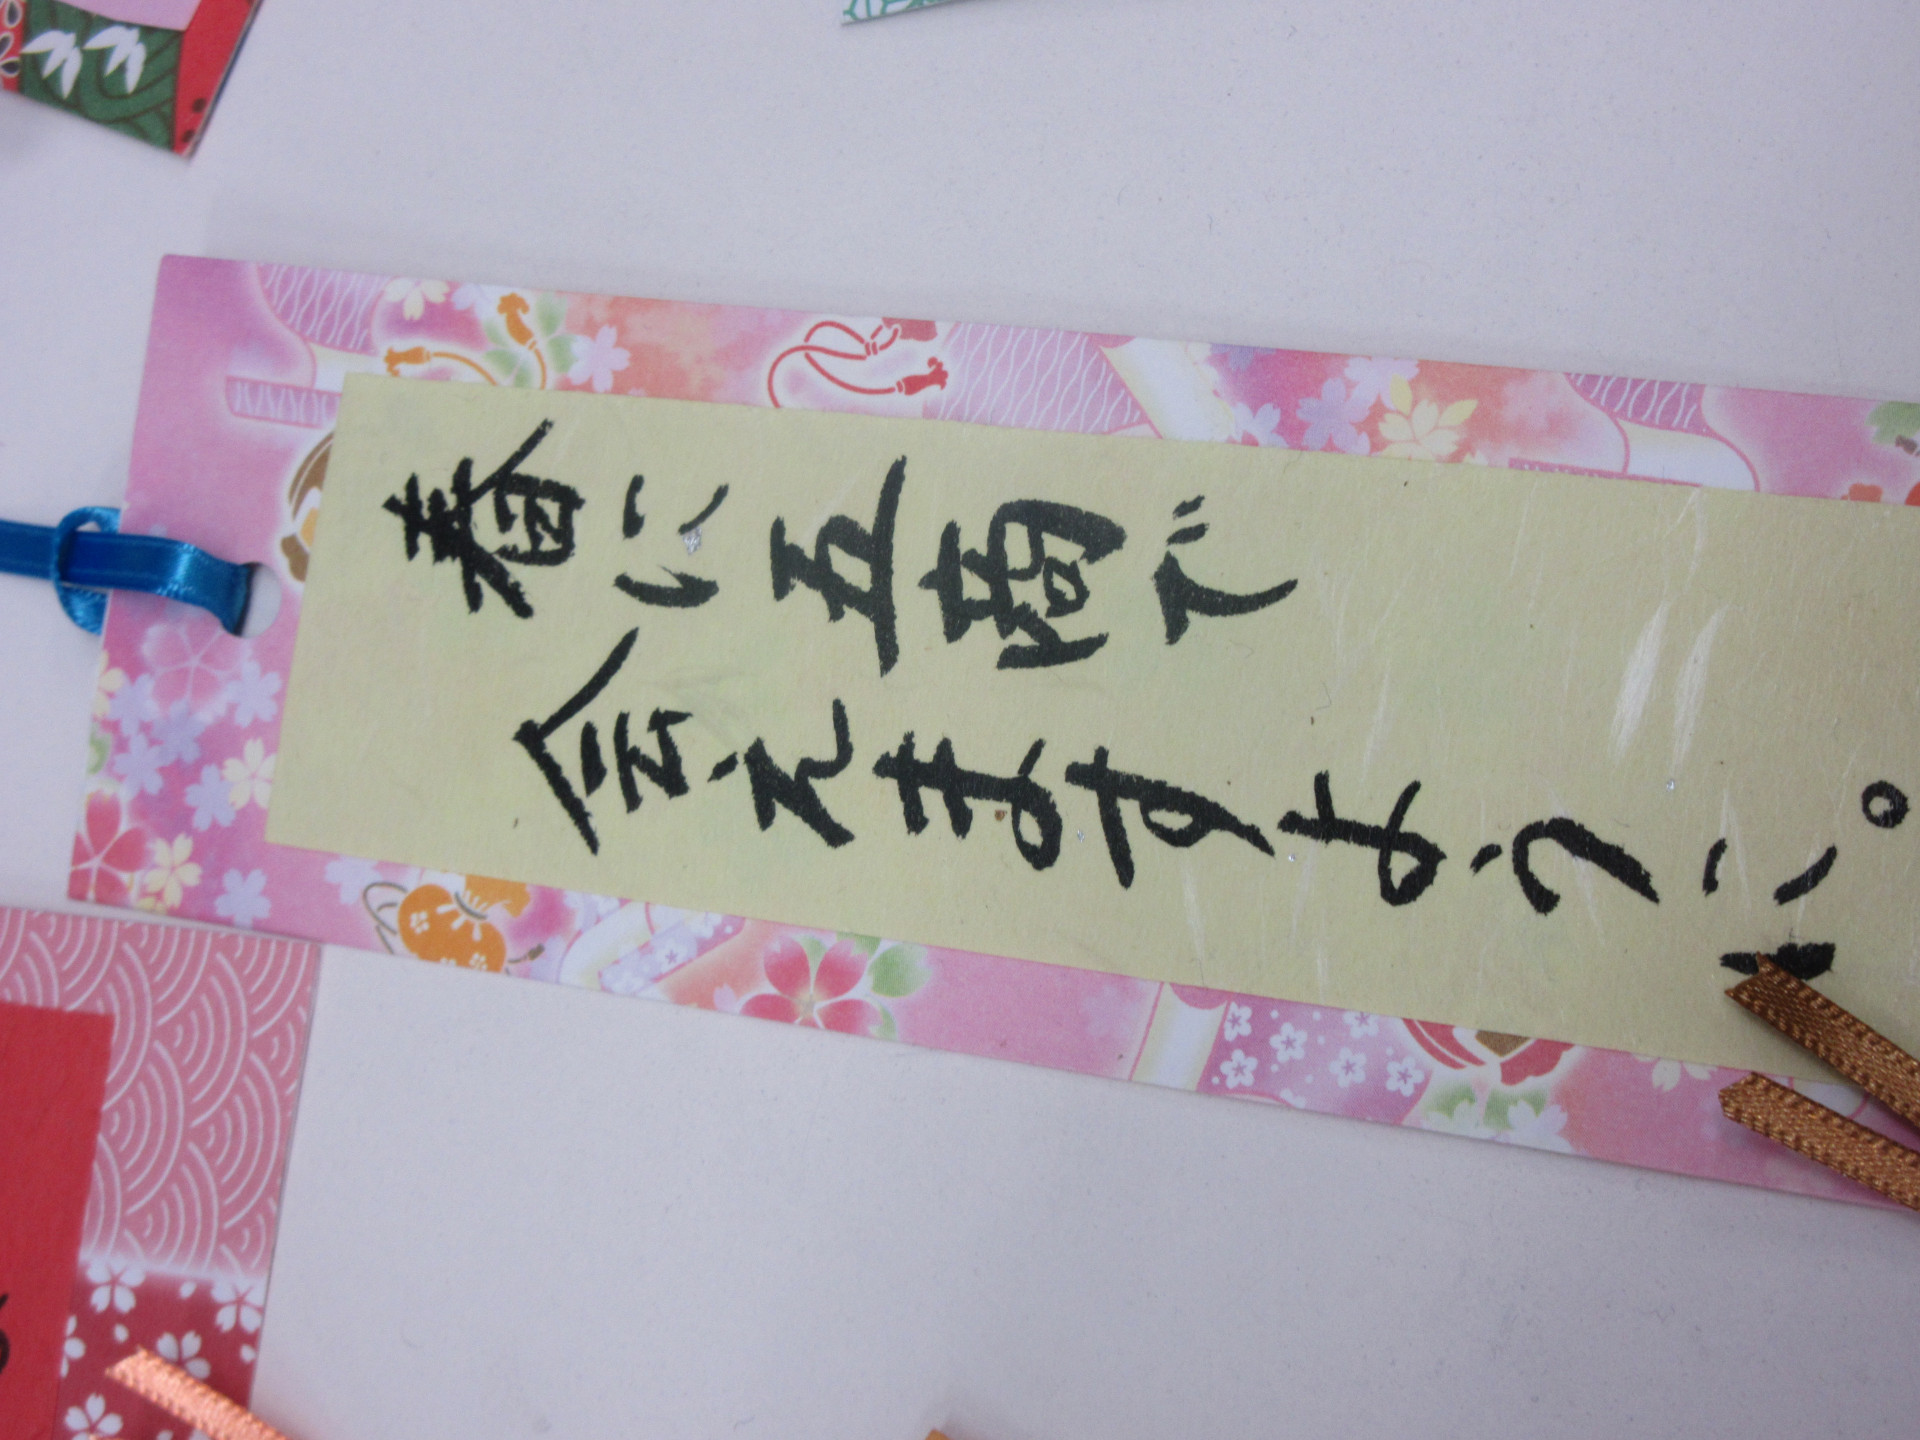 春に五稿で
会えますように。